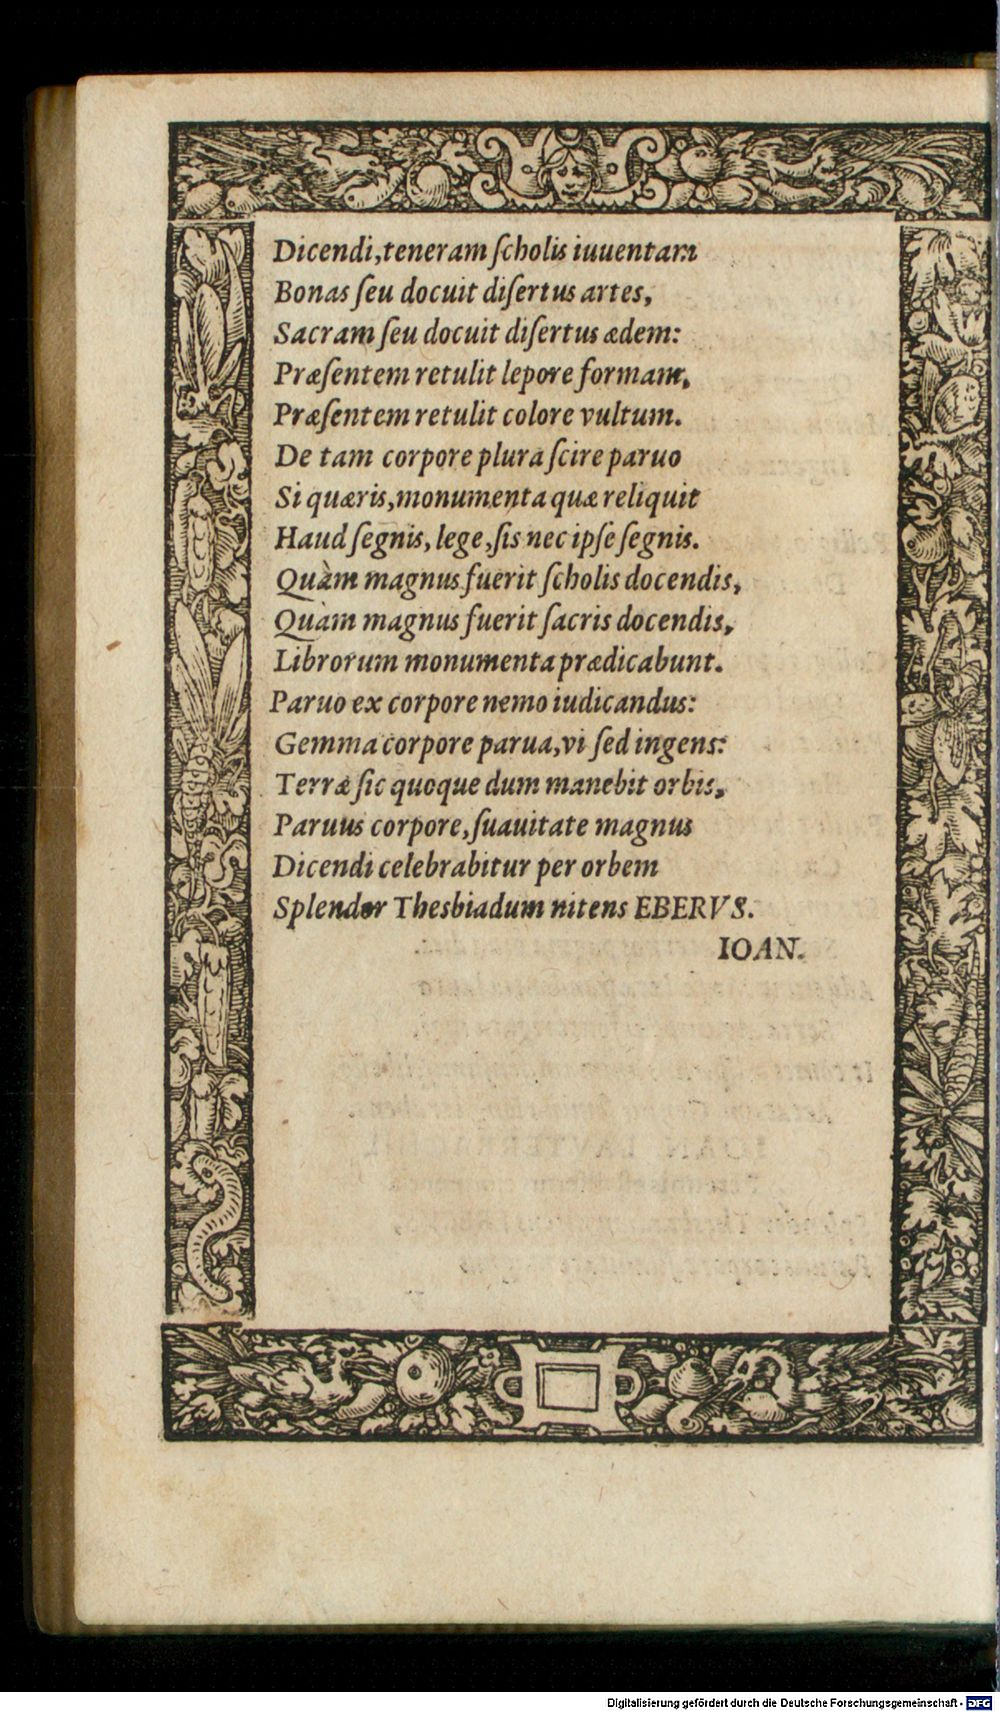 Dicendi,teneram ſcholis iuuentam
Bonas ſeu docuit diſertus artes,
Sacram ſeu docuit diſertus ædem:
Præſentem retulit lepore formam,
Præſentem retulit colore vultum.
De tam corpore plura ſcire paruo
Si quæris,monumenta quæ reliquit
Haud ſegnis, lege,ſis nec ipſe ſegnis.
Quàm magnus fuerit ſcholis docendis,
Quàm magnus fuerit ſacris docendis,
Librorum monumenta prædicabunt.
Paruo ex corpore nemo iudicandus:
Gemma corpore parua,vi ſed ingens:
Terræ ſic quoque dum manebit orbis,
Paruus corpore,ſuauitate magnus
Dicendi celebrabitur per orbem
Splendor Thesbiadum nitens EBERVS.
IOAN.
Digitalisierung gefördert durch die Deutsche Forschungsgemeinschaft - DFG